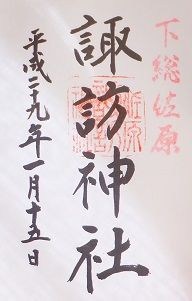 下総佐原
諏訪神社
平成二十九年一月十五日